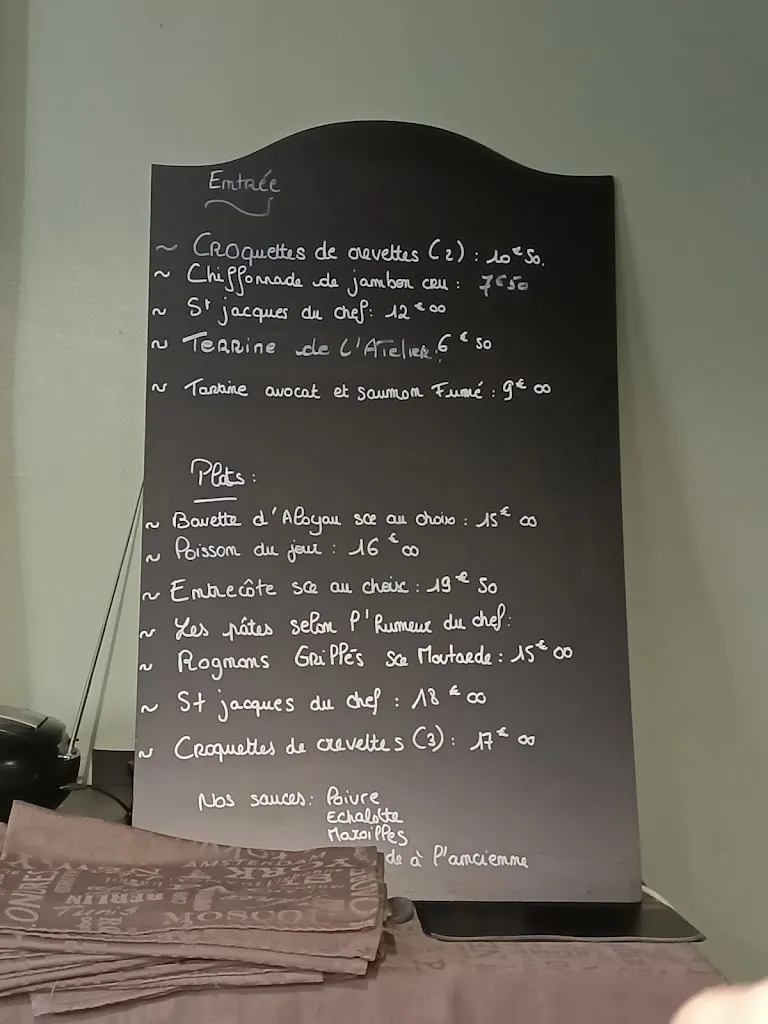 Entrée
~ CROquettes de crevettes (2) : 10€50.
~ Chiffonnade de jambon cru : 7€50
~ St jacques du chef : 12€00
~ TERRINE de L'Atelier : 6€50
~ Tartine avocat et saumon Fumé : 9€00
Plats :
~ Bavette d'Aloyau sce au choix : 15€00
~ Poisson du jour : 16€00
~ Entrecôte sce au choix : 19€50
~ Les pâtes selon l'humeur du chef :
~ Rognons GRillés sce Moutarde : 15€00
~ St jacques du chef : 18€00
~ Croquettes de crevettes (3) : 17€00
Nos sauces : Poivre
Echalotte
Maroilles
de à l'ancienne
AMSTERDAM
YORK
LONDRES
BERLIN
MOSCOU